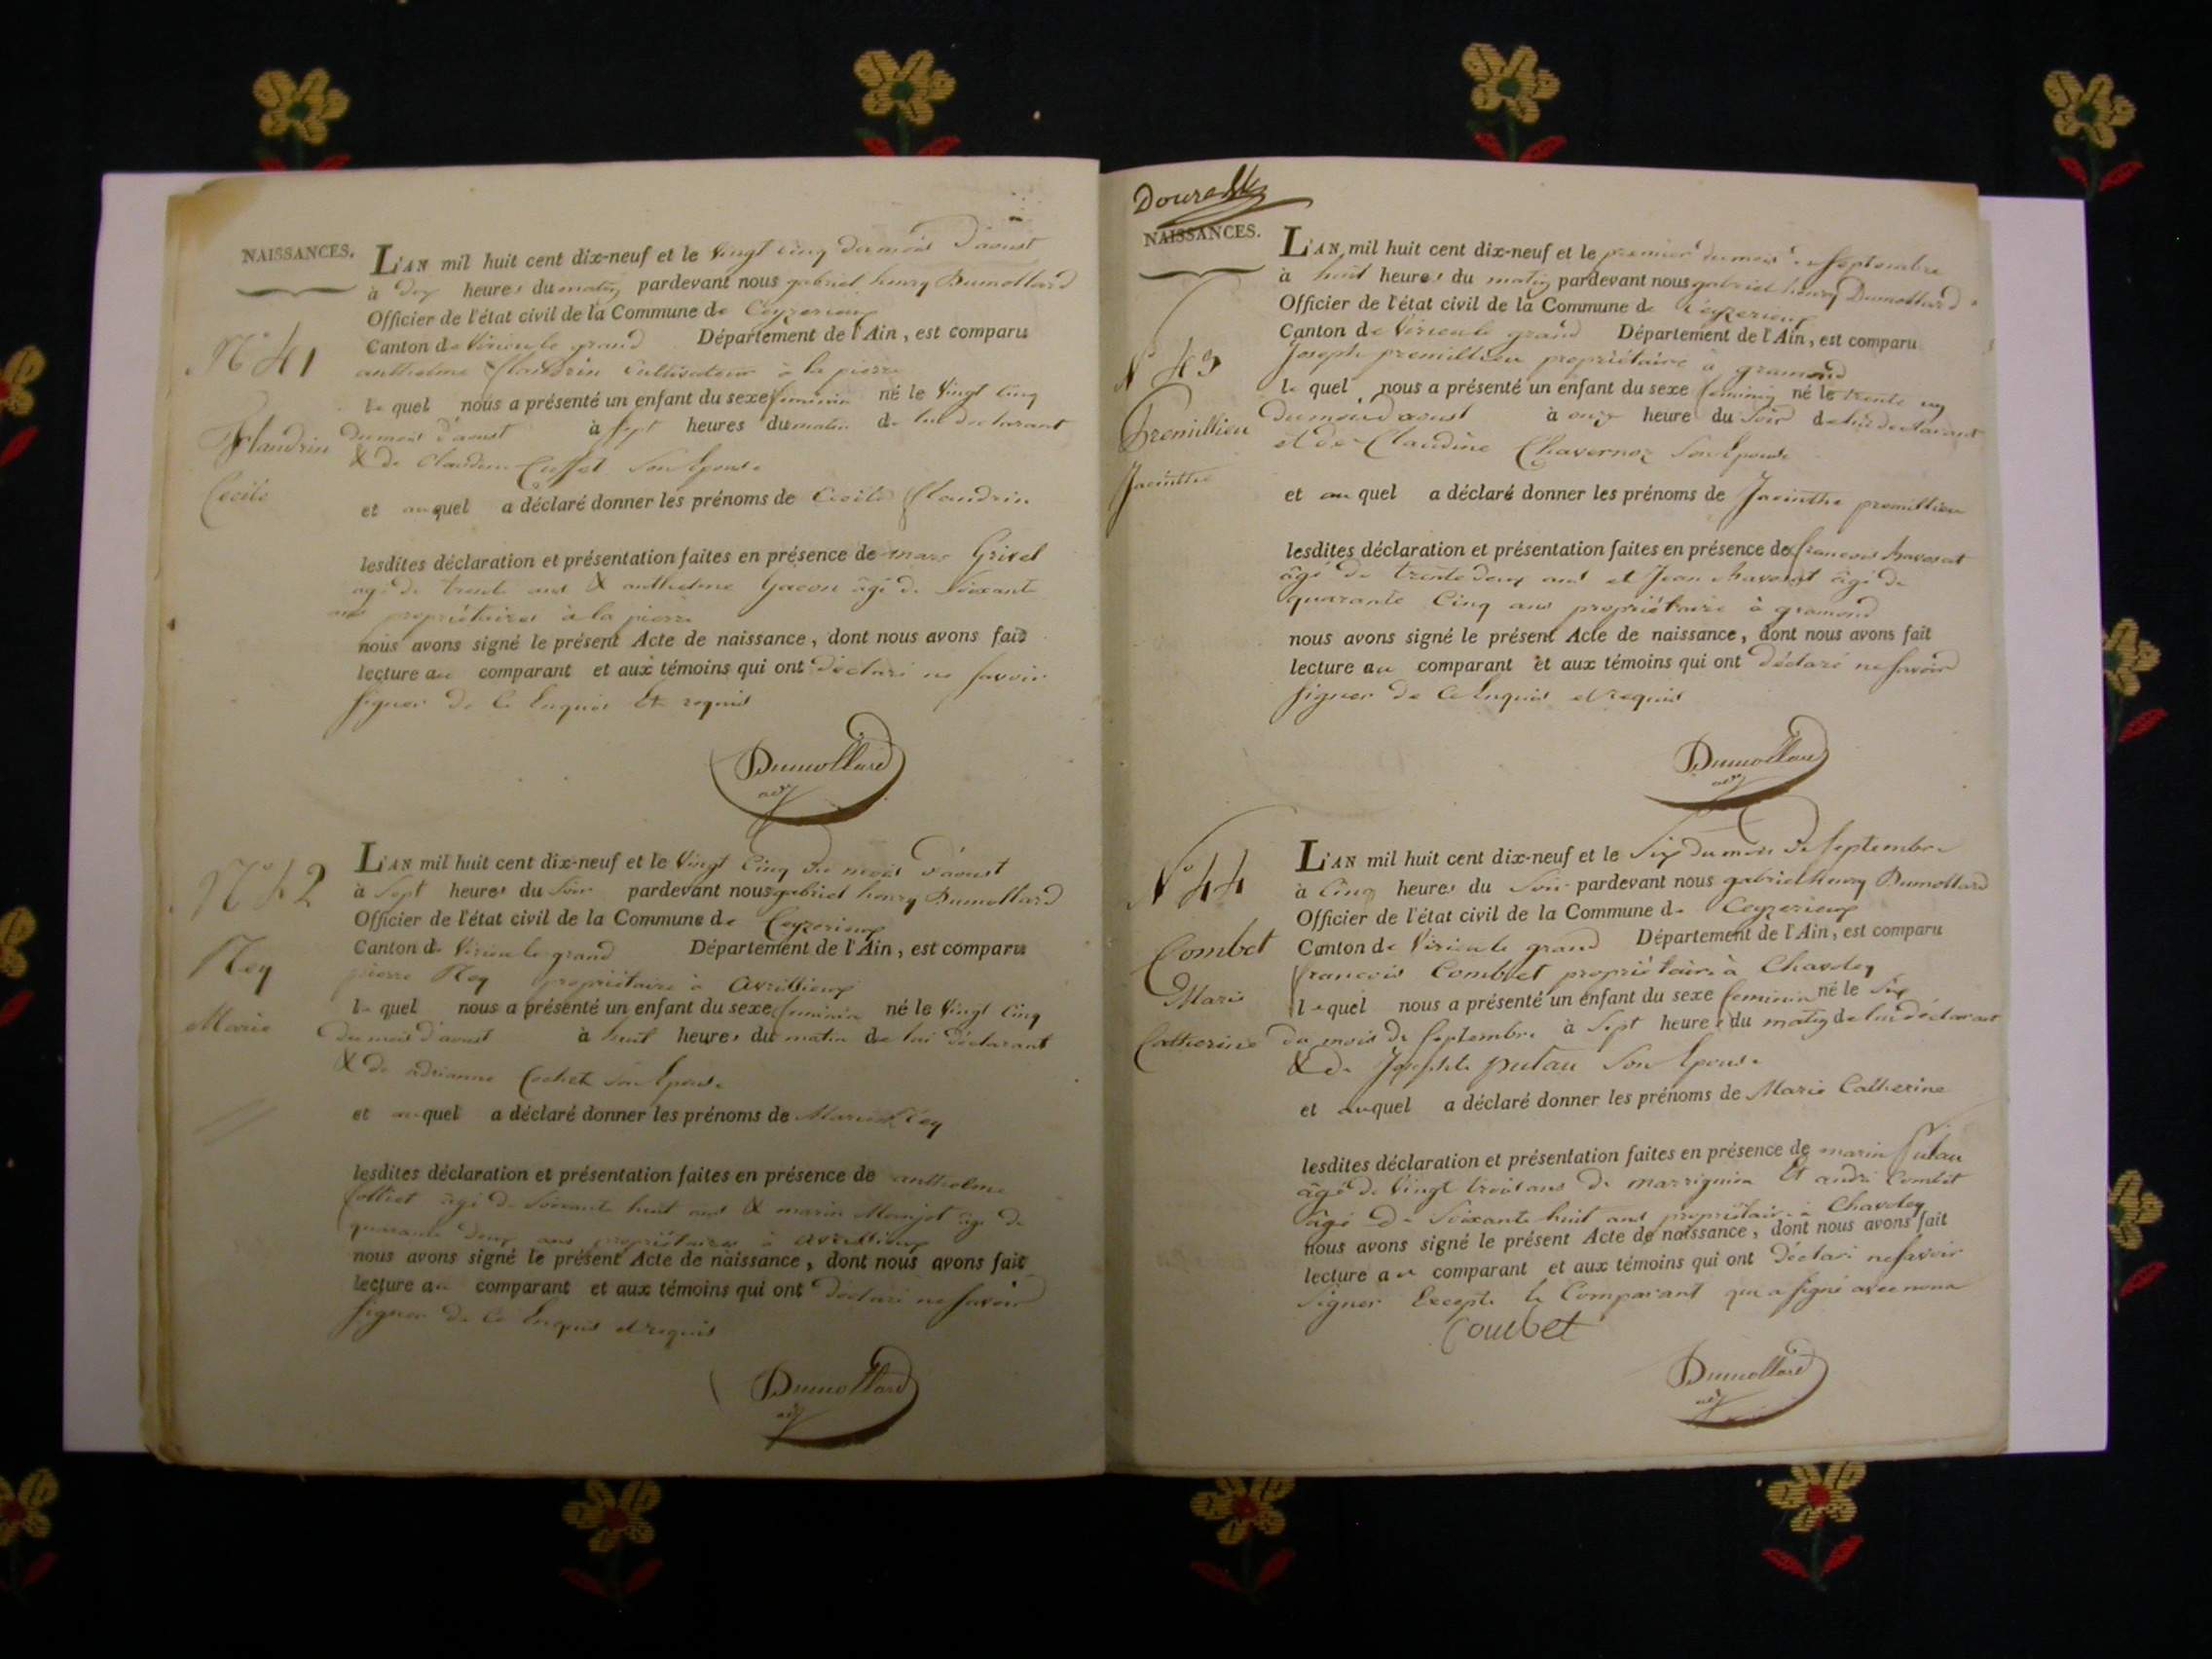 NAISSANCES.
L'AN mil huit cent dix-neuf et le vingt cinq du mois d'aoust
à dix heures du matin pardevant nous gabriel henry Dumollard
Officier de l'état civil de la Commune de Ceyzerieux
Canton de Virieu le grand Département de l'Ain, est comparu
N° 41
anthelme flandrin cultivateur à la pierre
le quel nous a présenté un enfant du sexe feminin né le vingt cinq
Flandrin
du mois d'aoust à sept heures du matin de lui declarant
& de Claudine Cusset son Epouse
Cecile
et auquel a déclaré donner les prénoms de Cecile flandrin
lesdites déclaration et présentation faites en présence de marc Grivel
agé de trente ans & anthelme Gacon âgé de soixante
ans propriétaires à la pierre
nous avons signé le présent Acte de naissance, dont nous avons fait
lecture au comparant et aux témoins qui ont déclaré ne savoir
signer de ce Enquis Et requis
Dumollard
N° 42
L'AN mil huit cent dix-neuf et le vingt cinq du mois d'aoust
à sept heures du soir pardevant nous gabriel henry Dumollard
Officier de l'état civil de la Commune de Ceyzerieux
Canton de Virieu le grand Département de l'Ain, est comparu
Rey
pierre Rey propriétaire à avrillieux
le quel nous a présenté un enfant du sexe feminin né le vingt cinq
Marie
du mois d'aoust à huit heures du matin de lui déclarant
& de adrianne Cochet son Epouse
et auquel a déclaré donner les prénoms de Marie Rey
lesdites déclaration et présentation faites en présence de anthelme
âgé de soixante huit ans & marin âgé de
quarante deux ans propriétaires à avrillieux
nous avons signé le présent Acte de naissance, dont nous avons fait
lecture au comparant et aux témoins qui ont déclaré ne savoir
signer de ce Enquis et requis
Dumollard
NAISSANCES.
L'AN mil huit cent dix-neuf et le premier du mois de septembre
à huit heures du matin pardevant nous gabriel henry Dumollard
Officier de l'état civil de la Commune de Ceyzerieux
Canton de Virieu le grand Département de l'Ain, est comparu
N° 43
Joseph premillieu propriétaire à gramond
le quel nous a présenté un enfant du sexe feminin né le trente un
Premillieu
du mois d'aoust à onze heure du soir de lui declarant
et de Claudine Chavernoz son Epouse
Jacinthe
et au quel a déclaré donner les prénoms de Jacinthe premillieu
lesdites déclaration et présentation faites en présence de francois
âgé de trente deux ans et Jean âgé de
quarante Cinq ans propriétaire à gramond
nous avons signé le présent Acte de naissance, dont nous avons fait
lecture au comparant et aux témoins qui ont déclaré ne savoir
signer de ce Enquis et requis
Dumollard
N° 44
L'AN mil huit cent dix-neuf et le six du mois de septembre
à Cinq heures du soir pardevant nous gabriel henry Dumollard
Officier de l'état civil de la Commune de Ceyzerieux
Combet
Canton de Virieu le grand Département de l'Ain, est comparu
francois Combet propriétaire à Chavoley
Marie
le quel nous a présenté un enfant du sexe feminin né le six
Catherine
du mois de septembre à sept heures du matin de lui déclarant
& de Josephte putau son Epouse
et auquel a déclaré donner les prénoms de Marie Catherine
lesdites déclaration et présentation faites en présence de marin Putau
âgé de vingt trois ans de marrignieu Et andré Combet
âgé de soixante huit ans propriétaire à Chavoley
nous avons signé le présent Acte de naissance, dont nous avons fait
lecture au comparant et aux témoins qui ont déclaré ne savoir
signer Excepté le Comparant qui a signé avec nous
Combet
Dumollard